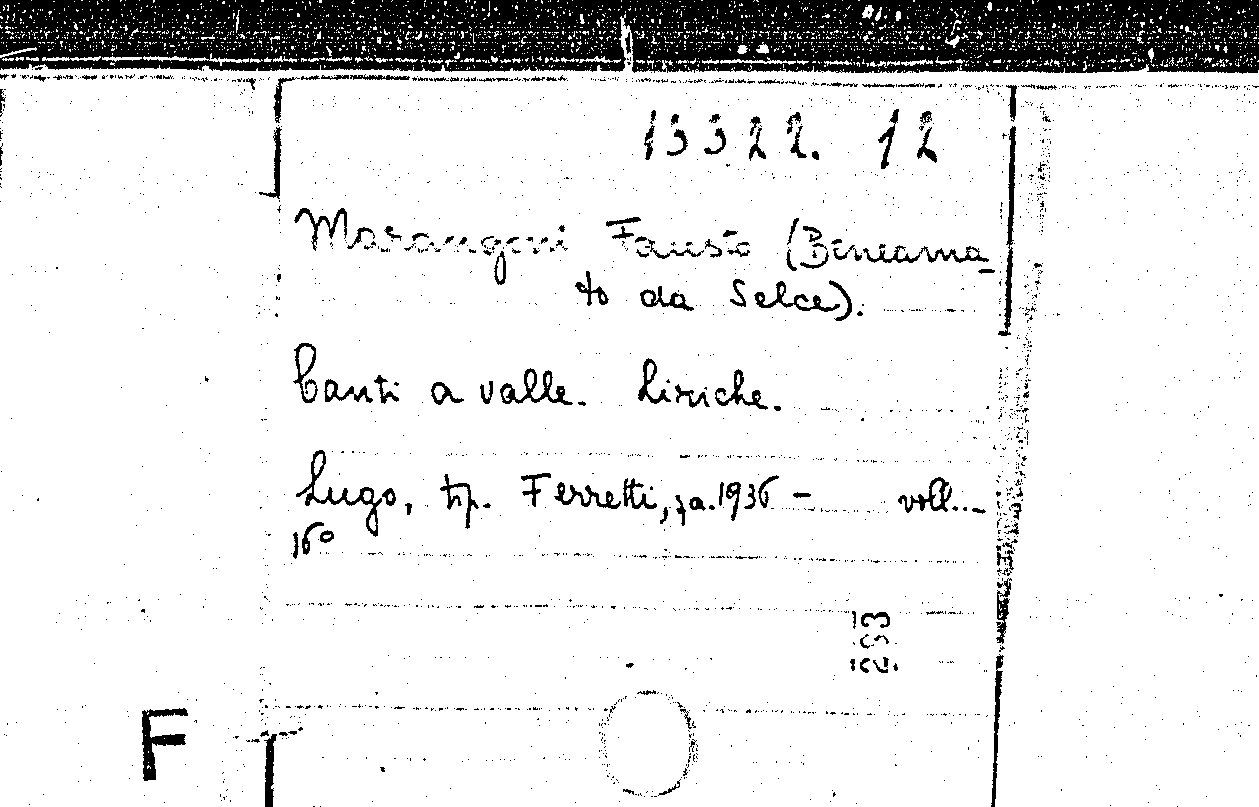 13322. 12
Marangoni Fausto (Beneama-
to da Selce).
Canti a valle. Liriche.
Lugo, tip. Ferretti, 1936 - voll...
16º
F